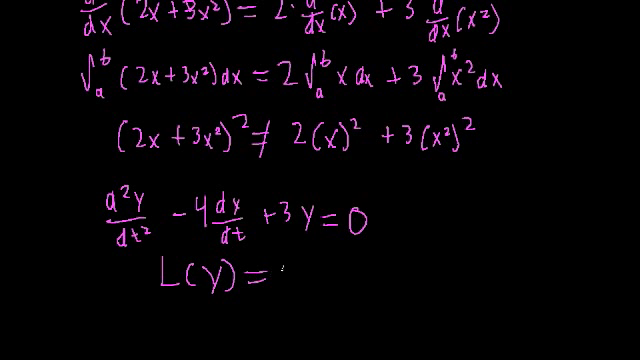 d/dx (2x + 3x²) = 2 · d/dx (x) + 3 d/dx (x²)
∫ₐᵇ (2x + 3x²) dx = 2 ∫ₐᵇ x dx + 3 ∫ₐᵇ x² dx
(2x + 3x²)² ≠ 2(x)² + 3(x²)²
d²y/dt² − 4 dy/dt + 3y = 0
L(y) =